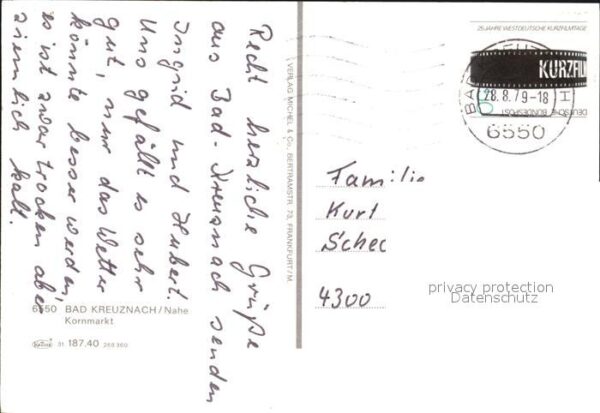 Recht herzliche Grüße
aus Bad-Kreuznach senden
Ingrid und Hubert.
Uns gefällt es sehr
gut, nur das Wetter
könnte besser werden,
es ist zwar trocken aber
ziemlich kalt.
6550 BAD KREUZNACH/Nahe
Kornmarkt
31 187.40 269 360
VERLAG MICHEL & Co., BERTRAMSTR. 73, FRANKFURT/M.
25 JAHRE WESTDEUTSCHE KURZFILMTAGE
KURZFILM
DEUTSCHE BUNDESPOST
BAD
28.8.79-18
6550
Familie
Kurt
Schec
4300
privacy protection
Datenschutz